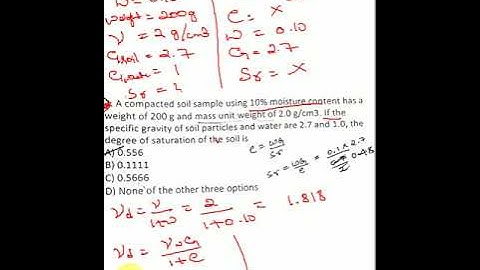 weight = 200g
γ = 2 g/cm3
Gsoil = 2.7
Gwater = 1
Sr = ?
e = x
w = 0.10
G = 2.7
Sr = x
A compacted soil sample using 10% moisture content has a
weight of 200 g and mass unit weight of 2.0 g/cm3. If the
specific gravity of soil particles and water are 2.7 and 1.0, the
degree of saturation of the soil is
A) 0.556
B) 0.1111
C) 0.5666
D) None of the other three options
e = wG/Sr
Sr = wG/e = 0.1x2.7/0.48
γd = γ/1+w = 2/1+0.10 = 1.818
γd = γwG/1+e